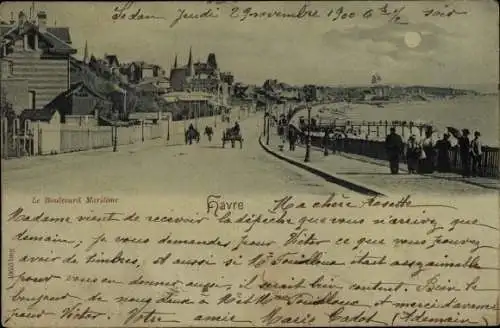 Sedan Jeudi 29 novembre 1900 6 h ½ soir
Le Boulevard Maritime
Havre
Ma chère Rosette
Madame vient de recevoir la dépêche que vous n'arrivez que
demain; je vous demandes pour Victor ce que vous pouvez
avoir de timbres, et aussi si Mr était assez aimable
pour vous en donner aussi, il serait bien content. Bien le
bonjour de nous deux à Mr et Mme et merci d'avance
pour Victor. Votre amie Marie (à demain)